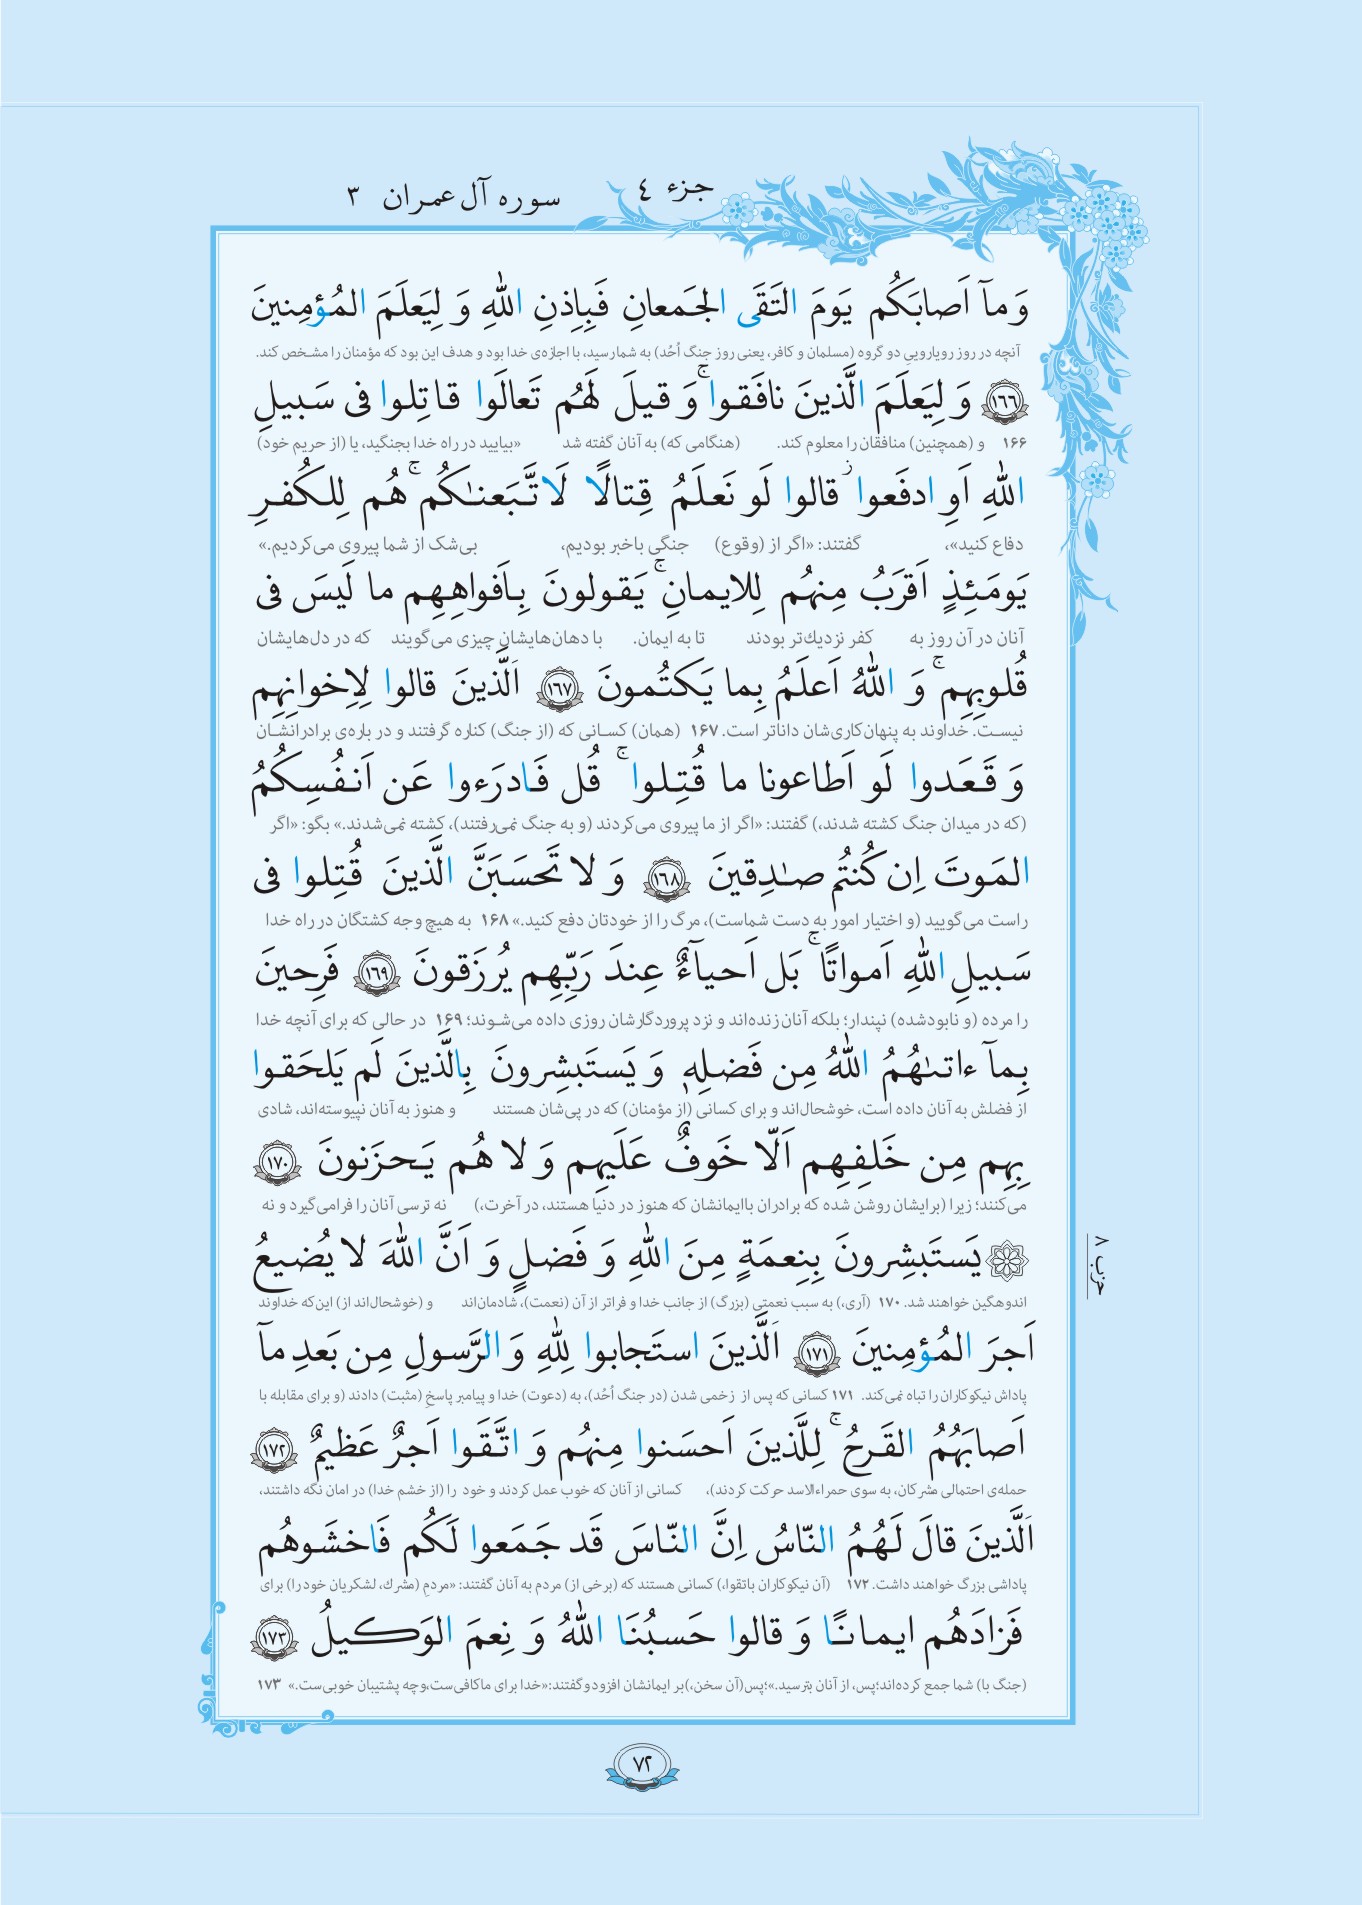 جزء ٤
سوره آل عمران ٣
وَ مآ اَصابَكُم يَومَ التَقَى الجَمعانِ فَبِاِذنِ اللهِ وَ لِيَعلَمَ المُؤمِنينَ
آنچه در روز رویاروییِ دو گروه (مسلمان و کافر، یعنی روز جنگ اُحُد) به شما رسید، با اجازه‌ی خدا بود و هدف این بود که مؤمنان را مشخص کند.
﴿١٦٦﴾ وَ لِيَعلَمَ الَّذينَ نافَقوا ۚ وَ قيلَ لَهُم تَعالَوا قاتِلوا فى سَبيلِ
۱۶۶ و (همچنین) منافقان را معلوم کند. (هنگامی که) به آنان گفته شد «بیایید در راه خدا بجنگید، یا (از حریم خود)
اللهِ اَوِ ادفَعوا ز قالوا لَو نَعلَمُ قِتالًا لَاتَّبَعنٰكُم ۚ هُم لِلكُفرِ
دفاع کنید»، گفتند: «اگر از (وقوع) جنگی باخبر بودیم، بی‌شک از شما پیروی می‌کردیم.»
يَومَئِذٍ اَقرَبُ مِنهُم لِلايمانِ ۚ يَقولونَ بِاَفواهِهِم ما لَيسَ فى
آنان در آن روز به کفر نزدیك‌تر بودند تا به ایمان. با دهان‌هایشان چیزی می‌گویند که در دل‌هایشان
قُلوبِهِم ۚ وَ اللهُ اَعلَمُ بِما يَكتُمونَ ﴿١٦٧﴾ اَلَّذينَ قالوا لِاِخوانِهِم
نیست. خداوند به پنهان‌کاری‌شان داناتر است. ۱۶۷ (همان) کسانی که (از جنگ) کناره گرفتند و در باره‌ی برادرانشان
وَ قَعَدوا لَو اَطاعونا ما قُتِلوا ۚ قُل فَادرَءوا عَن اَنفُسِكُمُ
(که در میدان جنگ کشته شدند،) گفتند: «اگر از ما پیروی می‌کردند (و به جنگ نمی‌رفتند)، کشته نمی‌شدند.» بگو: «اگر
المَوتَ اِن كُنتُم صٰدِقينَ ﴿١٦٨﴾ وَ لا تَحسَبَنَّ الَّذينَ قُتِلوا فى
راست می‌گویید (و اختیار امور به دست شماست)، مرگ را از خودتان دفع کنید.» ۱۶۸ به هیچ وجه کشتگان در راه خدا
سَبيلِ اللهِ اَمواتًا ۚ بَل اَحيآءٌ عِندَ رَبِّهِم يُرزَقونَ ﴿١٦٩﴾ فَرِحينَ
را مرده (و نابودشده) نپندار؛ بلکه آنان زنده‌اند و نزد پروردگارشان روزی داده می‌شوند؛ ۱۶۹ در حالی که برای آنچه خدا
بِمآ ءاتىٰهُمُ اللهُ مِن فَضلِهٖ وَ يَستَبشِرونَ بِالَّذينَ لَم يَلحَقوا
از فضلش به آنان داده است، خوشحال‌اند و برای کسانی (از مؤمنان) که در پی‌شان هستند و هنوز به آنان نپیوسته‌اند، شادی
بِهِم مِن خَلفِهِم اَلّا خَوفٌ عَلَيهِم وَ لا هُم يَحزَنونَ ﴿١٧٠﴾
می‌کنند؛ زیرا (برایشان روشن شده که برادران باایمانشان که هنوز در دنیا هستند، در آخرت،) نه ترسی آنان را فرامی‌گیرد و نه
۞ يَستَبشِرونَ بِنِعمَةٍ مِنَ اللهِ وَ فَضلٍ وَ اَنَّ اللهَ لا يُضيعُ
اندوهگین خواهند شد. ۱۷۰ (آری،) به سبب نعمتی (بزرگ) از جانب خدا و فراتر از آن (نعمت)، شادمان‌اند و (خوشحال‌اند از) این‌که خداوند
حزب ٨
اَجرَ المُؤمِنينَ ﴿١٧١﴾ اَلَّذينَ استَجابوا لِلهِ وَ الرَّسولِ مِن بَعدِ مآ
پاداش نیکوکاران را تباه نمی‌کند. ۱۷۱ کسانی که پس از زخمی شدن (در جنگ اُحُد)، به (دعوت) خدا و پیامبر پاسخ (مثبت) دادند (و برای مقابله با
اَصابَهُمُ القَرحُ ۚ لِلَّذينَ اَحسَنوا مِنهُم وَ اتَّقَوا اَجرٌ عَظيمٌ ﴿١٧٢﴾
حمله‌ی احتمالی مشرکان، به سوی حمراءالاسد حرکت کردند)، کسانی از آنان که خوب عمل کردند و خود را (از خشم خدا) در امان نگه داشتند،
اَلَّذينَ قالَ لَهُمُ النّاسُ اِنَّ النّاسَ قَد جَمَعوا لَكُم فَاخشَوهُم
پاداشی بزرگ خواهند داشت. ۱۷۲ (آن نیکوکاران باتقوا،) کسانی هستند که (برخی از) مردم به آنان گفتند: «مردمِ (مشرك، لشکریان خود را) برای
فَزادَهُم ايمانًا وَ قالوا حَسبُنَا اللهُ وَ نِعمَ الوَكيلُ ﴿١٧٣﴾
(جنگ با) شما جمع کرده‌اند؛ پس، از آنان بترسید.»؛ پس (آن سخن،) بر ایمانشان افزود و گفتند: «خدا برای ما کافی‌ست، و چه پشتیبان خوبی‌ست.» ۱۷۳
٧٢